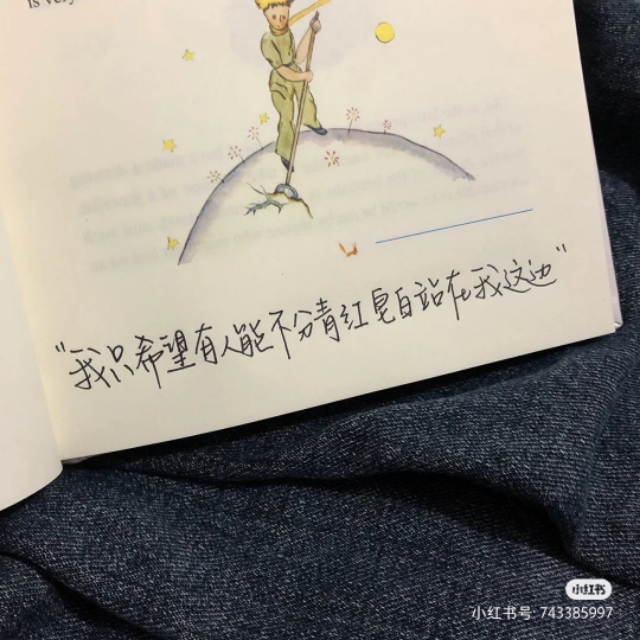 is very
"我只希望有人能不分青红皂白站在我这边"
小红书
小红书号 743385997